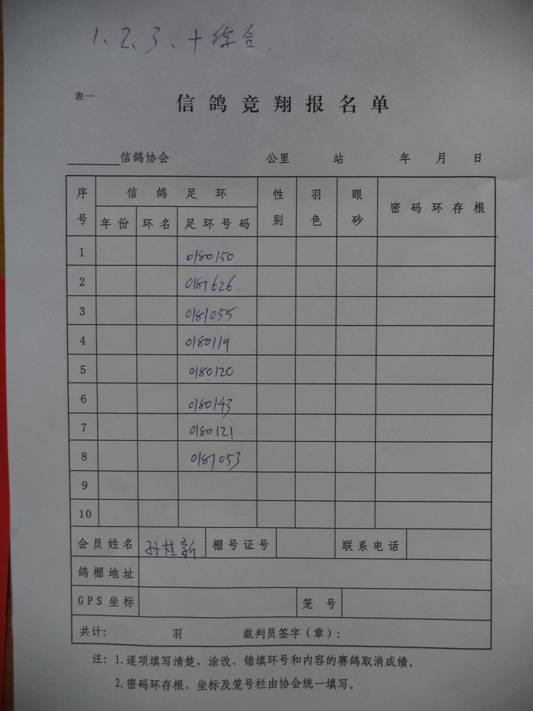 1、2、3、十综合.
表一
信鸽竞翔报名单
______信鸽协会 公里 站 年 月 日
序号 信鸽足环 性别 羽色 眼砂 密码环存根
年份 环名 足环号码
1 0180150
2 0181626.
3 0181055
4 0180119
5 0180120
6 0180143
7 0180121
8 0181053
9
10
会员姓名 孙桂新 棚号证号 联系电话
鸽棚地址
GPS坐标 笼号
共计: 羽 裁判员签字(章):
注: 1.逐项填写清楚、涂改、错填环号和内容的赛鸽取消成绩。
2.密码环存根、坐标及笼号栏由协会统一填写。